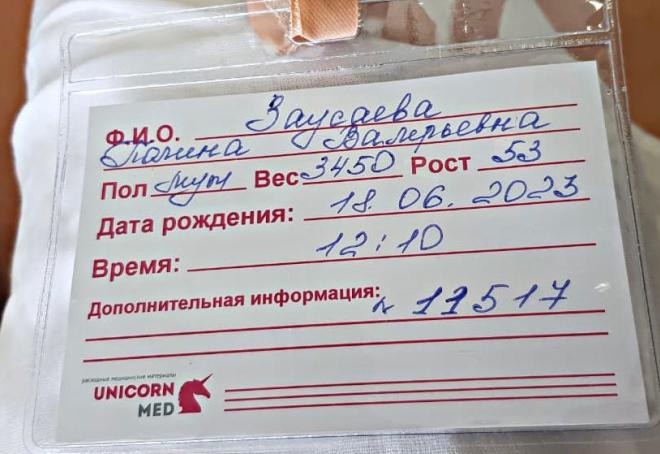 Ф.И.О. Заусаева
Полина Валерьевна
Пол муж Вес 3450 Рост 53
Дата рождения: 18.06.2023
Время: 12:10
Дополнительная информация: № 11517
расходные медицинские материалы
UNICORN
MED